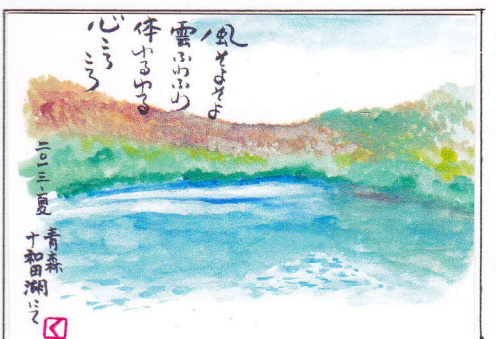 風そよそよ
雲ふわふわ
体ゆるゆる
心ころ
ころ
二〇一三・夏
青森
十和田湖にて
く